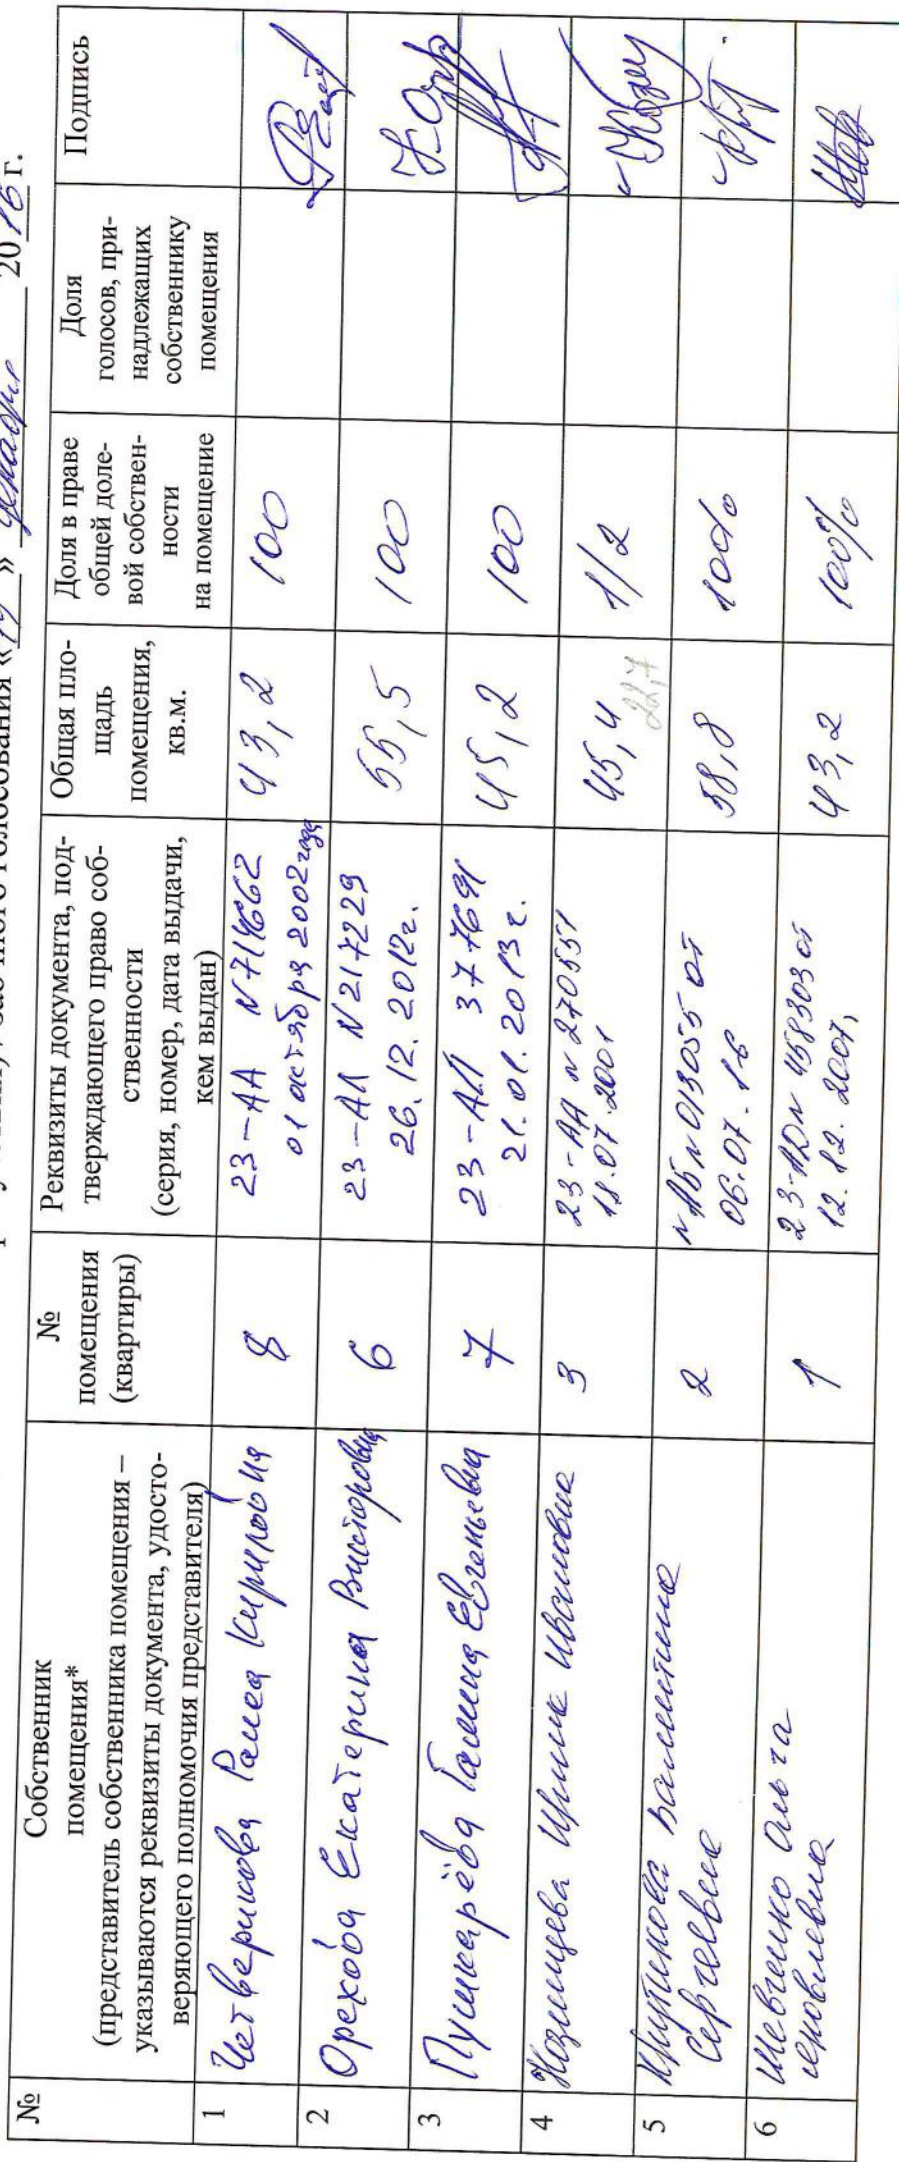 заочного голосования «19» декабря 2016 г.
№
Собственник
помещения*
(представитель собственника помещения –
указываются реквизиты документа, удосто-
веряющего полномочия представителя)
№
помещения
(квартиры)
Реквизиты документа, под-
тверждающего право соб-
ственности
(серия, номер, дата выдачи,
кем выдан)
Общая пло-
щадь
помещения,
кв.м.
Доля в праве
общей доле-
вой собствен-
ности
на помещение
Доля
голосов, при-
надлежащих
собственнику
помещения
Подпись
1
Четверикова Раиса Кириловна
8
23-АА N 714662
01 октября 2002 года
43,2
100
2
Орехова Екатерина Викторовна
6
23-АЛ N 217229
26.12.2012г.
55,5
100
3
Пушкарёва Галина Евгеньевна
7
23-АЛ 377691
21.01.2013г.
45,2
100
4
Ирина Ивановна
3
23-АА N 270551
18.07.2001
45,4
22,7
1/2
5
Валентина
Сергеевна
2
N 013055 от
06.07.16
58,8
100%
6
Шевченко Ольга
1
23-АД N 458303 от
12.12.2007,
43,2
100%